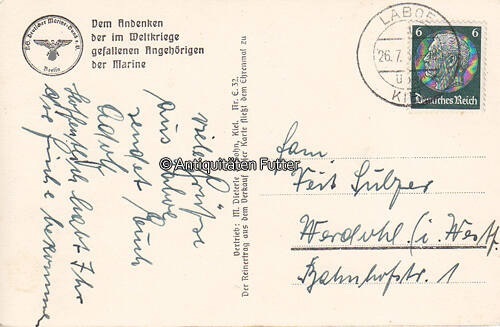 NS. Deutscher Marine-Bund e.V.
Berlin
Dem Andenken
der im Weltkriege
gefallenen Angehörigen
der Marine
LABOE
26.7.
KIEL
6 6
Deutsches Reich
viele Grüße
aus Laboe
sendet Euch
Adolf
hoffentlich habt Ihr
die Fische bekommen
© Antiquitäten Futter
Vertrieb: M. Dieterle Sohn, Kiel. Nr. E. 32.
Der Reinertrag aus dem Verkauf dieser Karte fließt dem Ehrenmal zu
Fam
Veit Sulzer
Werdohl (i. Westf.
Bahnhofstr. 1